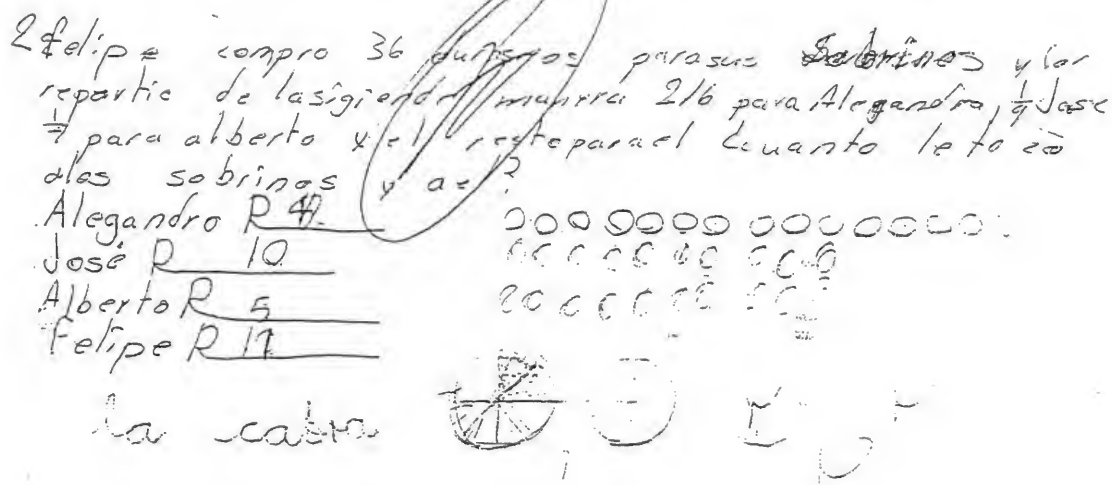 2 felipe compro 36 duraznos para sus sobrinos y los
repartio de la sigiendo manrra 2/6 para Alegandra, José
para alberto y el resto para el Cuanto le to co
alos sobrinos y a
Alegandro R
José R 10
Alberto R 5
Felipe R
la cabra